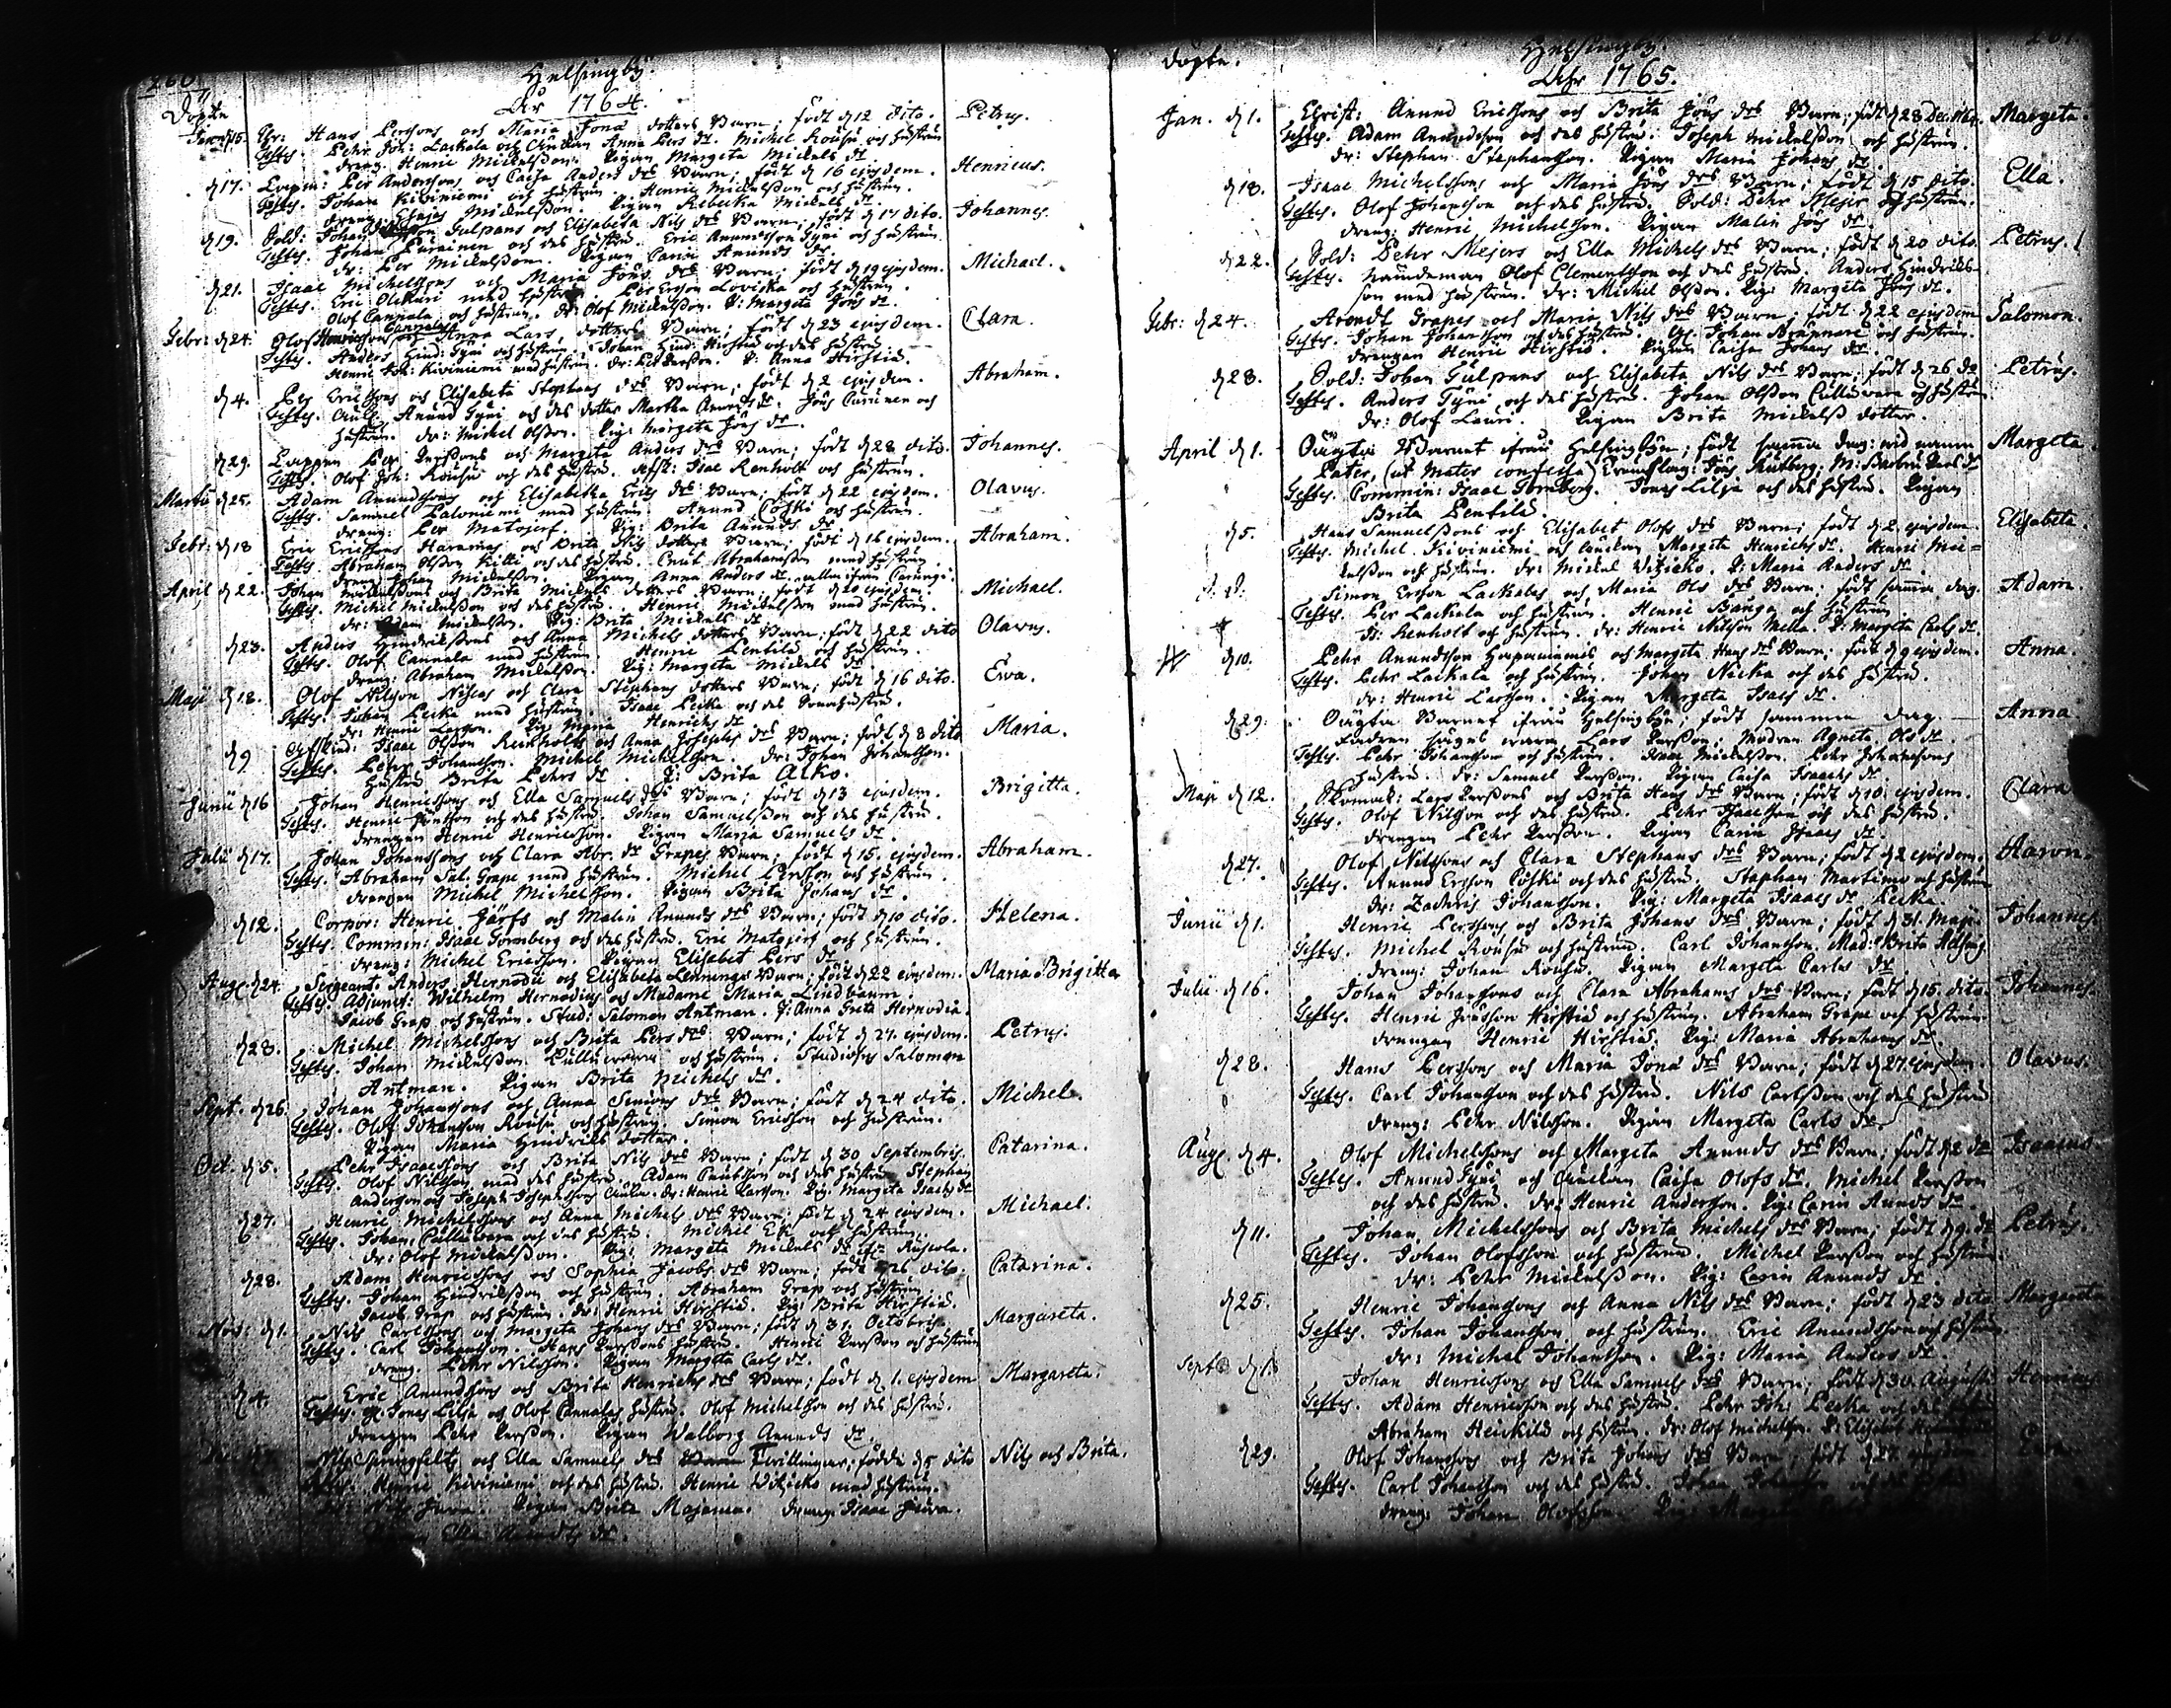 260.
Helsingby.
Dopte
År 1764.
Januarii d 15. Chr: Hans Perssons och Maria Jona dotters Barn; födt d 12 dito. Petrus.
Testes. Pehr Joh: Lackala och Änkan Anna Pers dr. Michel Rousu och hustrun
dreng: Henric Mickelsson. Pigan Margeta Mickels dr
d 17. Lappen: Per Anderssons och Caisa Anders drs Barn; födt d 16 ejusdem. Henricus.
Testes. Johan Kiviniemi och hustrun. Henric Mickelsson och hustrun.
dreng: Esajas Mickelsson. Pigan Rebecka Mickels dr.
d 19. Sold: Johan Gulpans och Elisabeta Nils drs Barn; födt d 17 dito. Johannes.
Testes. Johan Purainen och des hustru. Eric Anundsson Tyni och hustrun
dr: Per Mickelsson. Pigan Carin Anunds dr
d 21. Isaac Michelssons och Maria Jöns drs Barn; födt d 19 ejusdem. Michael.
Testes. Eric Olckuri med hustrun Per Ersson Loviska och hustrun.
Olof Cannala, och hustrun. dr: Olof Mickelsson. P: Margeta Jöns dr.
Febr: d 24. Olof Henricssons Cannalas och Anna Lars dotters Barn; födt d 23 ejusdem. Clara.
Testes. Anders Hind: Tyni och hustrun. Johan Hind: Hirstio och des hustru.
Henric Joh: Kiviniemi med hustrun. dr: Per Persson. P: Anna Hirstio.
d 4. Per Ericssons och Elisabeta Stephans drs Barn; födt d 2 ejusdem. Abraham.
Testes. Anund Tyni och des dotter Martha Anunds dr. Jöns Cururen och
hustrun. dr: Michel Olsson. Pig: Margeta Jöns dr.
d 29. Lappen Per Perssons och Margeta Anders drs Barn; födt d 28 dito. Johannes.
Testes. Olof Joh: Rousu och des hustru. Isac Renholt och hustrun.
Martii d 25. Adam Anundssons och Elisabetha Erics drs Barn; födt d 22 ejusdem. Olavus.
Testes. Samuel Paloniemi med hustrun. Anund Coski och hustrun.
dreng: Per Matojerf. Pig: Brita Anunds dr.
Febr: d 18 Eric Ericssons Haramas och Brita Nils dotters Barn; födt d 16 ejusdem. Abraham.
Testes. Abraham Olsson Kitti och des hustru. Cnut Abrahamsson med hustrun.
dreng Johan Mickelsson. Pigan Anna Anders dr. alla ifrån Carungi.
April d 22. Johan Mickelssons och Brita Mickels dotters Barn; födt d 20 ejusdem. Michael.
Testes. Michel Mickelsson och des hustru. Henric Mickelsson med hustrun.
dr: Adam Mickelsson. Pig: Brita Mickels dr.
d 23. Anders Hindrikssons och Anna Michels dotters Barn; födt d 22 dito Olavus.
Testes. Olof Cannala med hustrun Henric Pentila och hustrun.
dreng: Abraham Mickelsson. Pig: Margeta Mickels dr
Maji d 18. Olof Nilsson Niscas och Clara Stephans dotters Barn; födt d 16 dito. Ewa.
Testes. Johan Peika med hustrun. Isaac Peika och des Sonahustru.
dr: Henric Larsson. Pig: Maria Henrichs dr
d 9 Isaac Olsson Reinholts och Anna Josephs drs Barn; födt d 8 dito Maria.
Testes. Pehr Johansson. Michel Michelsson. dr: Johan Johansson.
hustru Brita Pehrs dr. P: Brita Alko.
Junii d 16 Johan Henricssons och Ella Samuels drs Barn; födt d 13 ejusdem. Brigitta.
Testes. Henric Jönsson och des hustru. Johan Samuelsson och des hustru.
drengen Henric Henricsson. Pigan Maria Samuels dr
Julii d 17. Johan Johanssons och Clara Abr. dr Grapes Barn; födt d 15. ejusdem. Abraham.
Testes. Abraham Sal. Grape med hustrun. Michel Persson och hustrun.
drengen Michel Michelsson. Pigan Brita Johans dr.
d 12. Corpor: Henric Järfs och Malin Anunds drs Barn; födt d 10 dito. Helena.
Testes. Commin: Isaac Tornberg och des hustru. Eric Matojerf och hustrun.
dreng: Michel Ericsson. Pigan Elisabet Pers dr
Aug. d 24. Sergeant: Anders Hernodii och Elisabeta Lennings Barn; födt d 22 ejusdem. Maria Brigitta
Testes. Adjunct: Wilhelm Hernodius och Madame Maria Lindbaum.
Jacob Grap och hustrun. Stud: Salomon Antman. J: Anna Greta Hernodia.
d 28. Michel Michelssons och Brita Pers drs Barn; födt d 27. ejusdem. Petrus.
Testes. Johan Mickelsson Pulluvara och hustrun. Studiosus Salomon
Antman. Pigan Brita Michels dr.
Sept. d 26. Johan Johanssons och Anna Simons drs Barn; födt d 24 dito. Michel.
Testes. Olof Johansson Rousu och hustrun. Simon Ericsson och hustrun.
Pigan Maria Hindriks dotter.
Oct. d 5. Pehr Isaacssons och Brita Nils drs Barn; födt d 30 Septembris. Catarina.
Testes. Olof Nilsson med des hustru. Adam Cnutsson och des hustru Stephan
Andersson och Joseph Josephssons Enka. dr: Henric Larsson. Pig: Margeta Isacs dr
d 27. Henric Michelssons och Anna Michels drs Barn; födt d 24 ejusdem. Michael.
Testes. Johan Pulluvara och des hustru. Michel Ek och hustrun.
dr: Olof Mickelsson. Pig: Margeta Mickels dr ifr: Ruscola.
d 28. Adam Henricssons och Sophia Jacobs drs Barn; födt d 26 dito. Catarina.
Testes. Johan Hindriksson och hustrun. Abraham Grap och hustrun.
Jacob Grap och hustrun. dr: Henric Hirstio. Pig: Brita Hirstio.
Nov: d 1. Nils Carlssons och Margeta Johans drs Barn; födt d 31. Octobris. Margareta.
Testes. Carl Johansson. Hans Perssons hustru. Henric Persson och hustrun
dreng: Pehr Nilsson. Pigan Margeta Carls dr.
d 4. Eric Anundssons och Brita Henrichs drs Barn; födt d 1. ejusdem Margareta.
Testes. Jones Lilja och Olof Cannalas hustru. Olof Michelsson och des hustru.
drengen Pehr Persson. Pigan Walborg Anunds dr.
Nils Springfelts och Ella Samuels drs Tvillingar; födde d 5 dito Nils och Brita.
Testes. Henric Kiviniemi och des hustru. Henric Witicko med hustrun.
dr: Nils Juva. Pigan Brita Majania. dreng: Isaac Juva.
Ella Anunds dr.
261.
Helsingby.
Dopte.
Ahr 1765.
Jan. d 1. Christ: Anund Ericssons och Brita Jöns drs Barn; födt d 28 Dec. 1764. Margeta.
Testes. Adam Anundsson och des hustru. Joseph Mickelsson och hustrun.
dr: Stephan Stephansson. Pigan Maria Johans dr.
d 18. Isaac Michelssons och Maria Jöns drs Barn; födt d 15 dito. Ella.
Testes. Olof Johansson och des hustru. Sold: Pehr Mejer och hustrun.
dreng: Henric Michelsson. Pigan Malin Jöns dr.
d 22. Sold: Pehr Mejers och Ella Michels drs Barn; födt d 20 dito. Petrus.
Testes. Nämdeman Olof Clementsson och des hustru. Anders Hindriks-
son med hustrun. dr: Michel Olsson. Pig: Margeta Jöns dr.
Febr: d 24. Arendt Grapes och Maria Nils drs Barn; födt d 22 ejusdem Salomon.
Testes. Johan Johansson och des hustru. Johan Brännare och hustrun.
drengen Henric Hirstio. Pigan Caisa Johans dr.
d 28. Sold: Johan Gulpans och Elisabeta Nils drs Barn; födt d 26 do Petrus.
Testes. Anders Tyni och des hustru. Johan Olsson Pulluvara och hustrun
dr: Olof Lauri. Pigan Brita Mickelss dotter.
April d 1. Oägta Barnet ifrån Helsingbyn; födt samma dag: vid namn Margeta.
Pater, (ut mater confessa) Jöns Skutberg; M: Barbru Pers dr
Testes. Commin: Isaac Tornberg. Jones Lilja och des hustru. Pigan
Brita Pentila.
d 5. Hans Samuelssons och Elisabet Olofs drs Barn; födt d 2 ejusdem. Elisabeta.
Testes. Michel Kiviniemi och Änkan Margeta Henrichs dr. Henric Mic-
kelsson och hustrun. dr: Michel Witicko. P: Maria Anders dr.
Simon Ersson Lackalas och Maria Ols drs Barn. födt samma dag. Adam.
Testes. Per Lackala och hustrun. Henric Bänga och hustrun.
Renholt och hustrun. dr: Henric Nilsson Mella. P: Margeta Carls dr.
d 10. Pehr Anundsson Haparimmes och Margeta Hans drs Barn; födt d 9 ejusdem. Anna.
Testes. Pehr Lackala och hustrun. Johan Nicka och des hustru.
dr: Henric Larsson. Pigan Margeta Isacs dr.
d 29. Oägta Barnet ifrån Helsingbyn; födt samma dag. Anna.
Fadren säges vara Lars Persson. Modren Agneta Ols dr.
Testes. Pehr Johansson och hustrun. Isaac Mickelsson. Pehr Johanssons
hustru. dr: Samuel Persson. Pigan Caisa Isaachs dr.
Maji d 12. Skomak: Lars Perssons och Brita Hans drs Barn; födt d 10. ejusdem. Clara
Testes. Olof Nilsson och des hustru. Pehr Isaacsson och des hustru.
drengen Pehr Persson. Pigan Carin Isaacs dr.
d 27. Olof Nilssons och Clara Stephans drs Barn; födt d 2 ejusdem. Aaron.
Testes. Anund Ersson Coski och des hustru. Staphan Martimo och hustrun
dr: Zachris Johansson. Pig: Margeta Isaacs dr Peika.
Junii d 1. Henric Perssons och Brita Johans drs Barn; födt d 31. Maji. Johannes.
Testes. Michel Rousu och hustrun. Carl Johansson. Mad: Brita Helsing
dreng: Johan Rousu. Pigan Margeta Carls dr
Julii d 16. Johan Johanssons och Clara Abrahams drs Barn; födt d 15 dito. Johannes.
Testes. Henric Jönsson Hirstio och hustrun. Abraham Grape och hustrun
drengen Henric Hirstio. Pig: Maria Abrahams dr.
d 28. Hans Perssons och Maria Jona drs Barn; födt d 27. ejusdem. Olavus.
Testes. Carl Johansson och des hustru. Nils Carlsson och des hustru
dreng: Pehr Nilsson. Pigan Margeta Carls dr.
Aug. d 4. Olof Michelssons och Margeta Anunds drs Barn; födt d 2 do Isaacus
Testes. Anund Tyni och Änckan Caisa Olofs dr. Michel Persson
och des hustru. dr: Henric Andersson. Pig: Carin Anunds dr.
d 11. Johan Michelssons och Brita Michels drs Barn; födt d 9. do Petrus.
Testes. Johan Olofsson och hustrun. Michel Persson och hustrun.
dr: Pehr Mickelsson. Pig: Carin Anunds dr.
d 25. Henric Johanssons och Anna Nils drs Barn; födt d 23 dito. Margareta
Testes. Johan Johansson och hustrun. Eric Anundsson och hustrun.
dr: Michel Johansson. Pig: Maria Anders dr.
Sept. d 1. Johan Henricssons och Ella Samuels drs Barn; födt d 30. Augusti Henricus
Testes. Adam Henricsson och des hustru. Pehr Joh: Peika och des hustru
Abraham Heickilä och hustrun. dr: Olof Michelsson. P: Elisabet
d 29. Olof Johanssons och Brita Johans drs Barn; födt d 27.
Testes. Carl Johansson och des hustru. Johan Johansson och des hustru
dreng: Johan Olofsson. Pig: Margeta